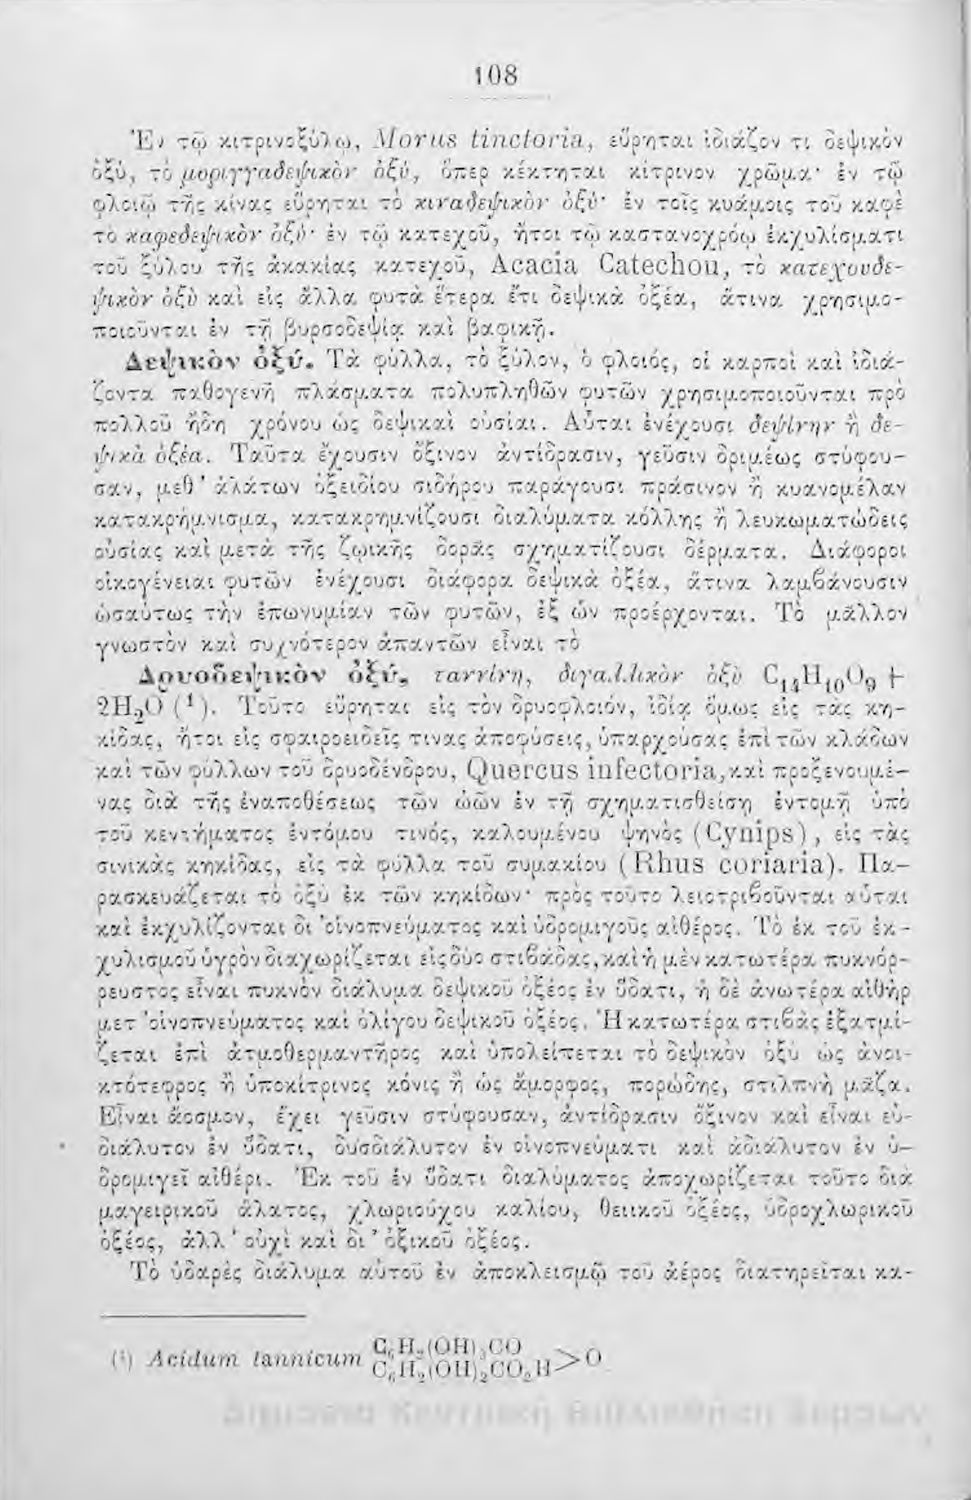 108
Ἐν τῷ κιτρινοξύλῳ, Morus tinctoria, εὕρηται ἰδιάζον τι δεψικὸν
ὀξύ, τὸ μοριγγαδεψικὸν ὀξύ, ὅπερ κέκτηται κίτρινον χρῶμα· ἐν τῷ
φλοιῷ τῆς κίνας εὕρηται τὸ κιναδεψικὸν ὀξύ· ἐν τοῖς κυάμοις τοῦ καφὲ
τὸ καφεδεψικὸν ὀξύ· ἐν τῷ κατεχοῦ, ἤτοι τῷ καστανοχρόῳ ἐκχυλίσματι
τοῦ ξύλου τῆς ἀκακίας κατεχοῦ, Acacia Catechou, τὸ κατεχουδε-
ψικὸν ὀξὺ καὶ εἰς ἄλλα φυτὰ ἕτερα ἔτι δεψικὰ ὀξέα, ἅτινα χρησιμο-
ποιοῦνται ἐν τῇ βυρσοδεψίᾳ καὶ βαφικῇ.
Δεψικὸν ὀξύ. Τὰ φύλλα, τὸ ξύλον, ὁ φλοιός, οἱ καρποὶ καὶ ἰδιά-
ζοντα παθογενῆ πλάσματα πολυπληθῶν φυτῶν χρησιμοποιοῦνται πρὸ
πολλοῦ ἤδη χρόνου ὡς δεψικαὶ οὐσίαι. Αὗται ἐνέχουσι δεψίνην ἢ δε-
ψικὰ ὀξέα. Ταῦτα ἔχουσιν ὄξινον ἀντίδρασιν, γεῦσιν δριμέως στύφου-
σαν, μεθ' ἁλάτων ὀξειδίου σιδήρου παράγουσι πράσινον ἢ κυανομέλαν
κατακρήμνισμα, κατακρημνίζουσι διαλύματα κόλλης ἢ λευκωματώδεις
οὐσίας καὶ μετὰ τῆς ζωικῆς δορᾶς σχηματίζουσι δέρματα. Διάφοροι
οἰκογένειαι φυτῶν ἐνέχουσι διάφορα δεψικὰ ὀξέα, ἅτινα λαμβάνουσιν
ὡσαύτως τὴν ἐπωνυμίαν τῶν φυτῶν, ἐξ ὧν προέρχονται. Τὸ μᾶλλον
γνωστὸν καὶ συχνότερον ἁπαντῶν εἶναι τὸ
Δρυοδεψικὸν ὀξύ, ταννίνη, διγαλλικὸν ὀξὺ C₁₄H₁₀O₉ +
2H₂O (¹). Τοῦτο εὕρηται εἰς τὸν δρυοφλοιόν, ἰδίᾳ ὅμως εἰς τὰς κη-
κίδας, ἤτοι εἰς σφαιροειδεῖς τινας ἀποφύσεις, ὑπαρχούσας ἐπὶ τῶν κλάδων
καὶ τῶν φύλλων τοῦ δρυοδένδρου, Quercus infectoria, καὶ προξενουμέ-
νας διὰ τῆς ἐναποθέσεως τῶν ὠῶν ἐν τῇ σχηματισθείσῃ ἐντομῇ ὑπὸ
τοῦ κεντήματος ἐντόμου τινός, καλουμένου ψηνὸς (Cynips), εἰς τὰς
σινικὰς κηκίδας, εἰς τὰ φύλλα τοῦ συμακίου (Rhus coriaria). Πα-
ρασκευάζεται τὸ ὀξὺ ἐκ τῶν κηκίδων· πρὸς τοῦτο λειοτριβοῦνται αὗται
καὶ ἐκχυλίζονται δι' οἰνοπνεύματος καὶ ὑδρομιγοῦς αἰθέρος. Τὸ ἐκ τοῦ ἐκ-
χυλισμοῦ ὑγρὸν διαχωρίζεται εἰς δύο στιβάδας, καὶ ἡ μὲν κατωτέρα πυκνόρ-
ρευστος εἶναι πυκνὸν διάλυμα δεψικοῦ ὀξέος ἐν ὕδατι, ἡ δὲ ἀνωτέρα αἰθὴρ
μετ' οἰνοπνεύματος καὶ ὀλίγου δεψικοῦ ὀξέος. Ἡ κατωτέρα στιβὰς ἐξατμί-
ζεται ἐπὶ ἀτμοθερμαντῆρος καὶ ὑπολείπεται τὸ δεψικὸν ὀξὺ ὡς ἀνοι-
κτότεφρος ἢ ὑποκίτρινος κόνις ἢ ὡς ἄμορφος, πορώδης, στιλπνὴ μᾶζα.
Εἶναι ἄοσμον, ἔχει γεῦσιν στύφουσαν, ἀντίδρασιν ὄξινον καὶ εἶναι εὐ-
διάλυτον ἐν ὕδατι, δυσδιάλυτον ἐν οἰνοπνεύματι καὶ ἀδιάλυτον ἐν ὑ-
δρομιγεῖ αἰθέρι. Ἐκ τοῦ ἐν ὕδατι διαλύματος ἀποχωρίζεται τοῦτο διὰ
μαγειρικοῦ ἅλατος, χλωριούχου καλίου, θειικοῦ ὀξέος, ὑδροχλωρικοῦ
ὀξέος, ἀλλ' οὐχὶ καὶ δι' ὀξικοῦ ὀξέος.
Τὸ ὑδαρὲς διάλυμα αὐτοῦ ἐν ἀποκλεισμῷ τοῦ ἀέρος διατηρεῖται κα-
(¹) Acidum tannicum C₆H₂(OH)₃CO
C₆H₂(OH)₂CO₂H >O
Δημόσια Κεντρική Βιβλιοθήκη Σερρών